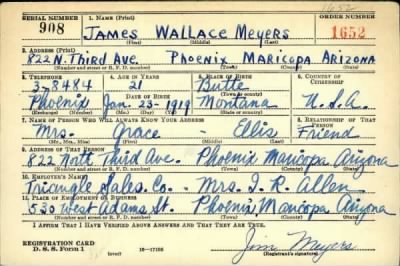 1652
SERIAL NUMBER 1. NAME (Print) ORDER NUMBER
908 JAMES WALLACE MEYERS 1652
(First) (Middle) (Last)
2. ADDRESS (Print)
822 N. THIRD AVE. PHOENIX MARICOPA ARIZONA
(Number and street or R. F. D. number) (Town) (County) (State)
3. TELEPHONE 4. AGE IN YEARS 5. PLACE OF BIRTH 6. COUNTRY OF CITIZENSHIP
3-8484 21 Butte
DATE OF BIRTH (Town or county)
Phoenix Jan. 23-1919 Montana U.S.A.
(Exchange) (Number) (Mo.) (Day) (Yr.) (State or country)
7. NAME OF PERSON WHO WILL ALWAYS KNOW YOUR ADDRESS 8. RELATIONSHIP OF THAT PERSON
Mrs. Grace - Ellis Friend
(Mr., Mrs., Miss) (First) (Middle) (Last)
9. ADDRESS OF THAT PERSON
822 North Third Ave. Phoenix Maricopa Arizona
(Number and street or R. F. D. number) (Town) (County) (State)
10. EMPLOYER'S NAME
Triangle Sales Co. - Mrs. I. R. Allen
11. PLACE OF EMPLOYMENT OR BUSINESS
530 West Adams St. Phoenix Maricopa Arizona
(Number and street or R. F. D. number) (Town) (County) (State)
I AFFIRM THAT I HAVE VERIFIED ABOVE ANSWERS AND THAT THEY ARE TRUE.
REGISTRATION CARD
D. S. S. Form 1 (over) 16-17105
Jim Meyers
(Registrant's signature)